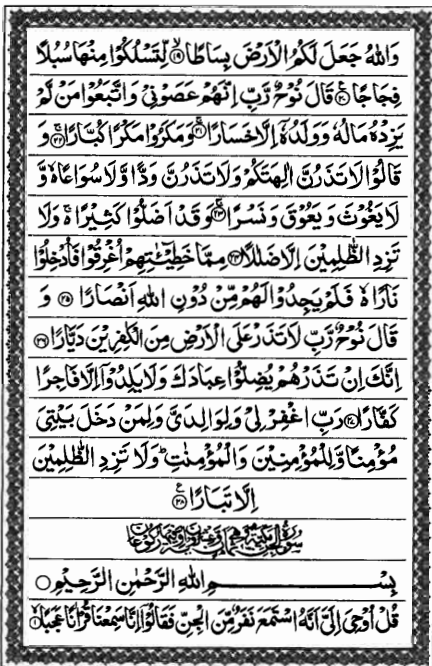 وَاللّٰهُ جَعَلَ لَكُمُ الْاَرْضَ بِسَاطًا ۙ﴿۱۹﴾ لِّتَسْلُكُوْا مِنْهَا سُبُلًا
فِجَاجًا ﴿۲۰﴾ قَالَ نُوْحٌ رَّبِّ اِنَّهُمْ عَصَوْنِيْ وَاتَّبَعُوْا مَنْ لَّمْ
يَزِدْهُ مَالُهٗ وَوَلَدُهٗۤ اِلَّا خَسَارًا ﴿۲۱﴾ وَمَكَرُوْا مَكْرًا كُبَّارًا ﴿۲۲﴾ وَ
قَالُوْا لَا تَذَرُنَّ اٰلِهَتَكُمْ وَلَا تَذَرُنَّ وَدًّا وَّلَا سُوَاعًا ۙ وَّ
لَا يَغُوْثَ وَيَعُوْقَ وَنَسْرًا ﴿۲۳﴾ وَقَدْ اَضَلُّوْا كَثِيْرًا ۚ وَلَا
تَزِدِ الظّٰلِمِيْنَ اِلَّا ضَلٰلًا ﴿۲۴﴾ مِمَّا خَطِيْٓـٰٔتِهِمْ اُغْرِقُوْا فَاُدْخِلُوْا
نَارًا ۙ فَلَمْ يَجِدُوْا لَهُمْ مِّنْ دُوْنِ اللّٰهِ اَنْصَارًا ﴿۲۵﴾ وَ
قَالَ نُوْحٌ رَّبِّ لَا تَذَرْ عَلَى الْاَرْضِ مِنَ الْكٰفِرِيْنَ دَيَّارًا ﴿۲۶﴾
اِنَّكَ اِنْ تَذَرْهُمْ يُضِلُّوْا عِبَادَكَ وَلَا يَلِدُوْۤا اِلَّا فَاجِرًا
كَفَّارًا ﴿۲۷﴾ رَبِّ اغْفِرْ لِيْ وَلِوَالِدَيَّ وَلِمَنْ دَخَلَ بَيْتِيَ
مُؤْمِنًا وَّلِلْمُؤْمِنِيْنَ وَالْمُؤْمِنٰتِ ؕ وَلَا تَزِدِ الظّٰلِمِيْنَ
اِلَّا تَبَارًا ﴿۲۸﴾
بِسْمِ اللّٰهِ الرَّحْمٰنِ الرَّحِيْمِ
قُلْ اُوْحِيَ اِلَيَّ اَنَّهُ اسْتَمَعَ نَفَرٌ مِّنَ الْجِنِّ فَقَالُوْۤا اِنَّا سَمِعْنَا قُرْاٰنًا عَجَبًا ۙ﴿۱﴾